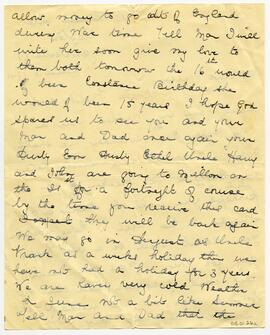 allow money to go out of England
during War time Tell Mon I will
write her soon give my love to
them both tomorrow the 16th would
of been Constance Birthday she
would of been 15 years I hope God
spared us to see you and your
Mon and Dad once again your
Ethel Uncle Harry
and John are going to
on the for a fortnight of course
by the time you receive this card
they will be back again
We may go in August as Uncle
Frank as a weeks holiday then we
have not had a holiday for 3 years
We are having very cold Weather
in June not a bit like Summer
Tell Mon and Dad that the